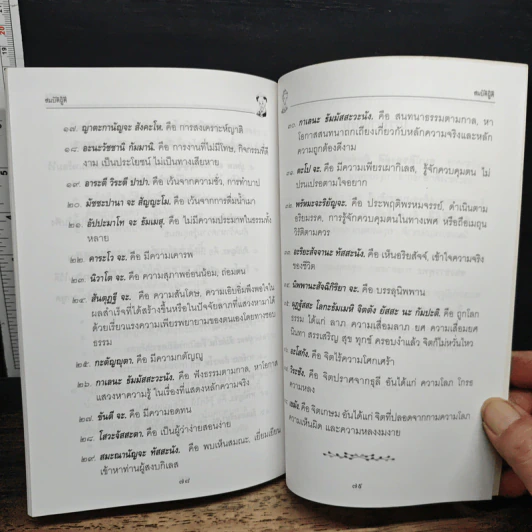 ๑๗. ญาตะกานัญจะ สังคะโห. คือ การสงเคราะห์ญาติ
๑๘. อะนะวัชชานิ กัมมานิ. คือ การงานที่ไม่มีโทษ, กิจกรรมที่ดี
งาม เป็นประโยชน์ ไม่เป็นทางเสียหาย
๑๙. อาระตี วิระตี ปาปา. คือ เว้นจากความชั่ว, การทำบาป
๒๐. มัชชะปานา จะ สัญญะโม. คือ เว้นจากการดื่มน้ำเมา
๒๑. อัปปะมาโท จะ ธัมเมสุ. คือ ไม่มีความประมาทในธรรมทั้ง
หลาย
๒๒. คาระโว จะ. คือ มีความเคารพ
๒๓. นิวาโต จะ. คือ ความสุภาพอ่อนน้อม, ถ่อมตน
๒๔. สันตุฏฐี จะ. คือ ความสันโดษ, ความเอิบอิ่มพึงพอใจใน
ผลสำเร็จที่ได้สร้างขึ้นหรือในปัจจัยลาภที่แสวงหามาได้
ด้วยเรี่ยวแรงความเพียรพยายามของตนเองโดยทางชอบ
ธรรม
๒๕. กะตัญญุตา. คือ มีความกตัญญู
๒๖. กาเลนะ ธัมมัสสะวะนัง. คือ ฟังธรรมตามกาล, หาโอกาส
แสวงหาความรู้ ในเรื่องที่แสดงหลักความจริง
๒๗. ขันตี จะ. คือ มีความอดทน
๒๘. โสวะจัสสะตา. คือ เป็นผู้ว่าง่ายสอนง่าย
๒๙. สมะณานัญจะ ทัสสะนัง. คือ พบเห็นสมณะ, เยี่ยมเยียน
เข้าหาท่านผู้สงบกิเลส
๗๘
กาเลนะ ธัมมัสสะวะนัง. คือ สนทนาธรรมตามกาล, หา
โอกาสสนทนาถกเถียงเกี่ยวกับหลักความจริงและหลัก
ความถูกต้องดีงาม
ตะโป จะ. คือ มีความเพียรเผากิเลส, รู้จักควบคุมตน ไม่
ปรนเปรอตามใจอยาก
พรัหมะจะริยัญจะ. คือ ประพฤติพรหมจรรย์, ดำเนินตาม
อริยมรรค, การรู้จักควบคุมตนในทางเพศ หรือถือเมถุน
วิรัติตามควร
อะริยะสัจจานะ ทัสสะนัง. คือ เห็นอริยสัจจ์, เข้าใจความจริง
ของชีวิต
นิพพานะสัจฉิกิริยา จะ. คือ บรรลุนิพพาน
ผุฏฐัสสะ โลกะธัมเมหิ จิตตัง ยัสสะ นะ กัมปะติ. คือ ถูกโลก
ธรรม ได้แก่ ลาภ ความเสื่อมลาภ ยศ ความเสื่อมยศ
นินทา สรรเสริญ สุข ทุกข์ ครอบงำแล้ว จิตก็ไม่หวั่นไหว
อะโสกัง. คือ จิตไร้ความโศกเศร้า
วิระชัง. คือ จิตปราศจากธุลี อันได้แก่ ความโลภ โกรธ
ความหลง
เขมัง. คือ จิตเกษม อันได้แก่ จิตที่ปลอดจากกามความโลภ
ความเห็นผิด และความหลงงมงาย
๗๙